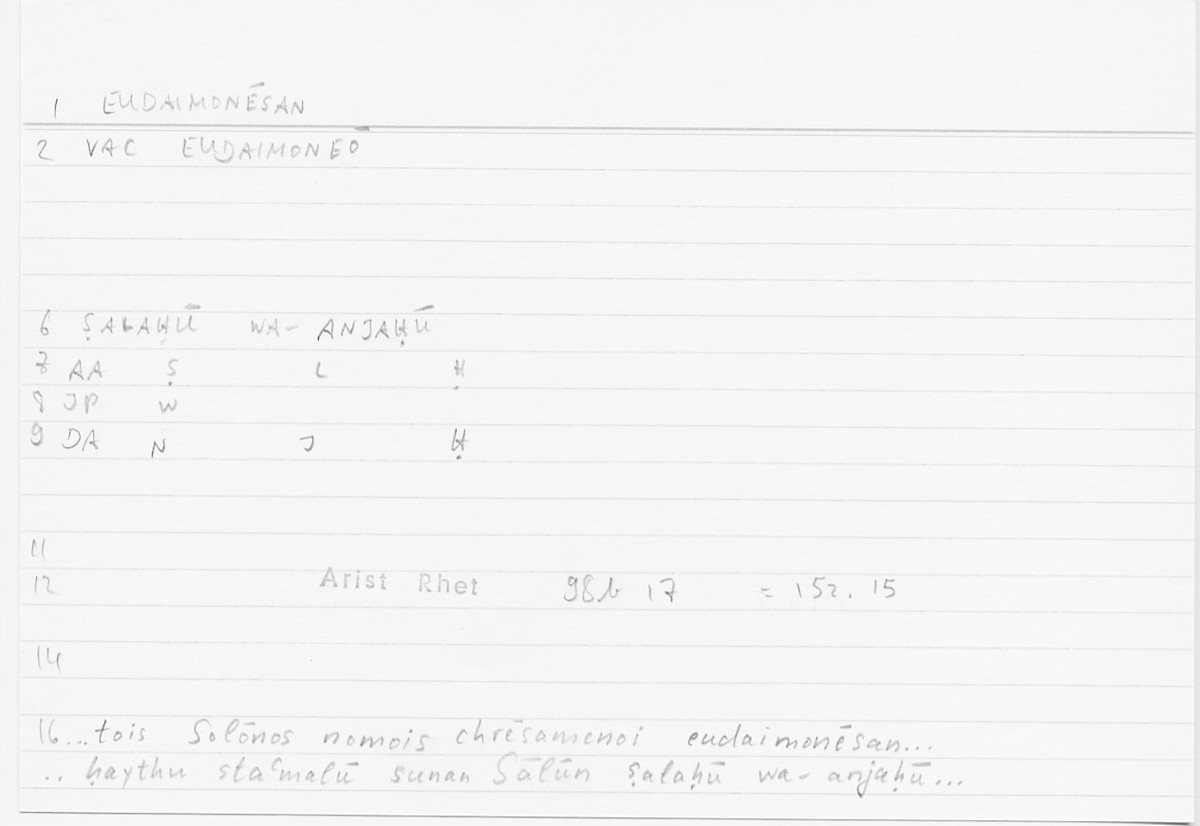 1 EUDAIMONĒSAN
2 VAC EUDAIMONEŌ
6 ṢALAḤŪ WA- ANJAḤŪ
7 AA Ṣ L Ḥ
8 JP W
9 DA N J Ḥ
11
12 Arist Rhet 98b 17 = 152.15
14
16...tois Solōnos nomois chrēsamenoi eudaimonēsan...
.. ḥaythu staʿmalū sunan Sālūn ṣalaḥū wa- anjaḥū...